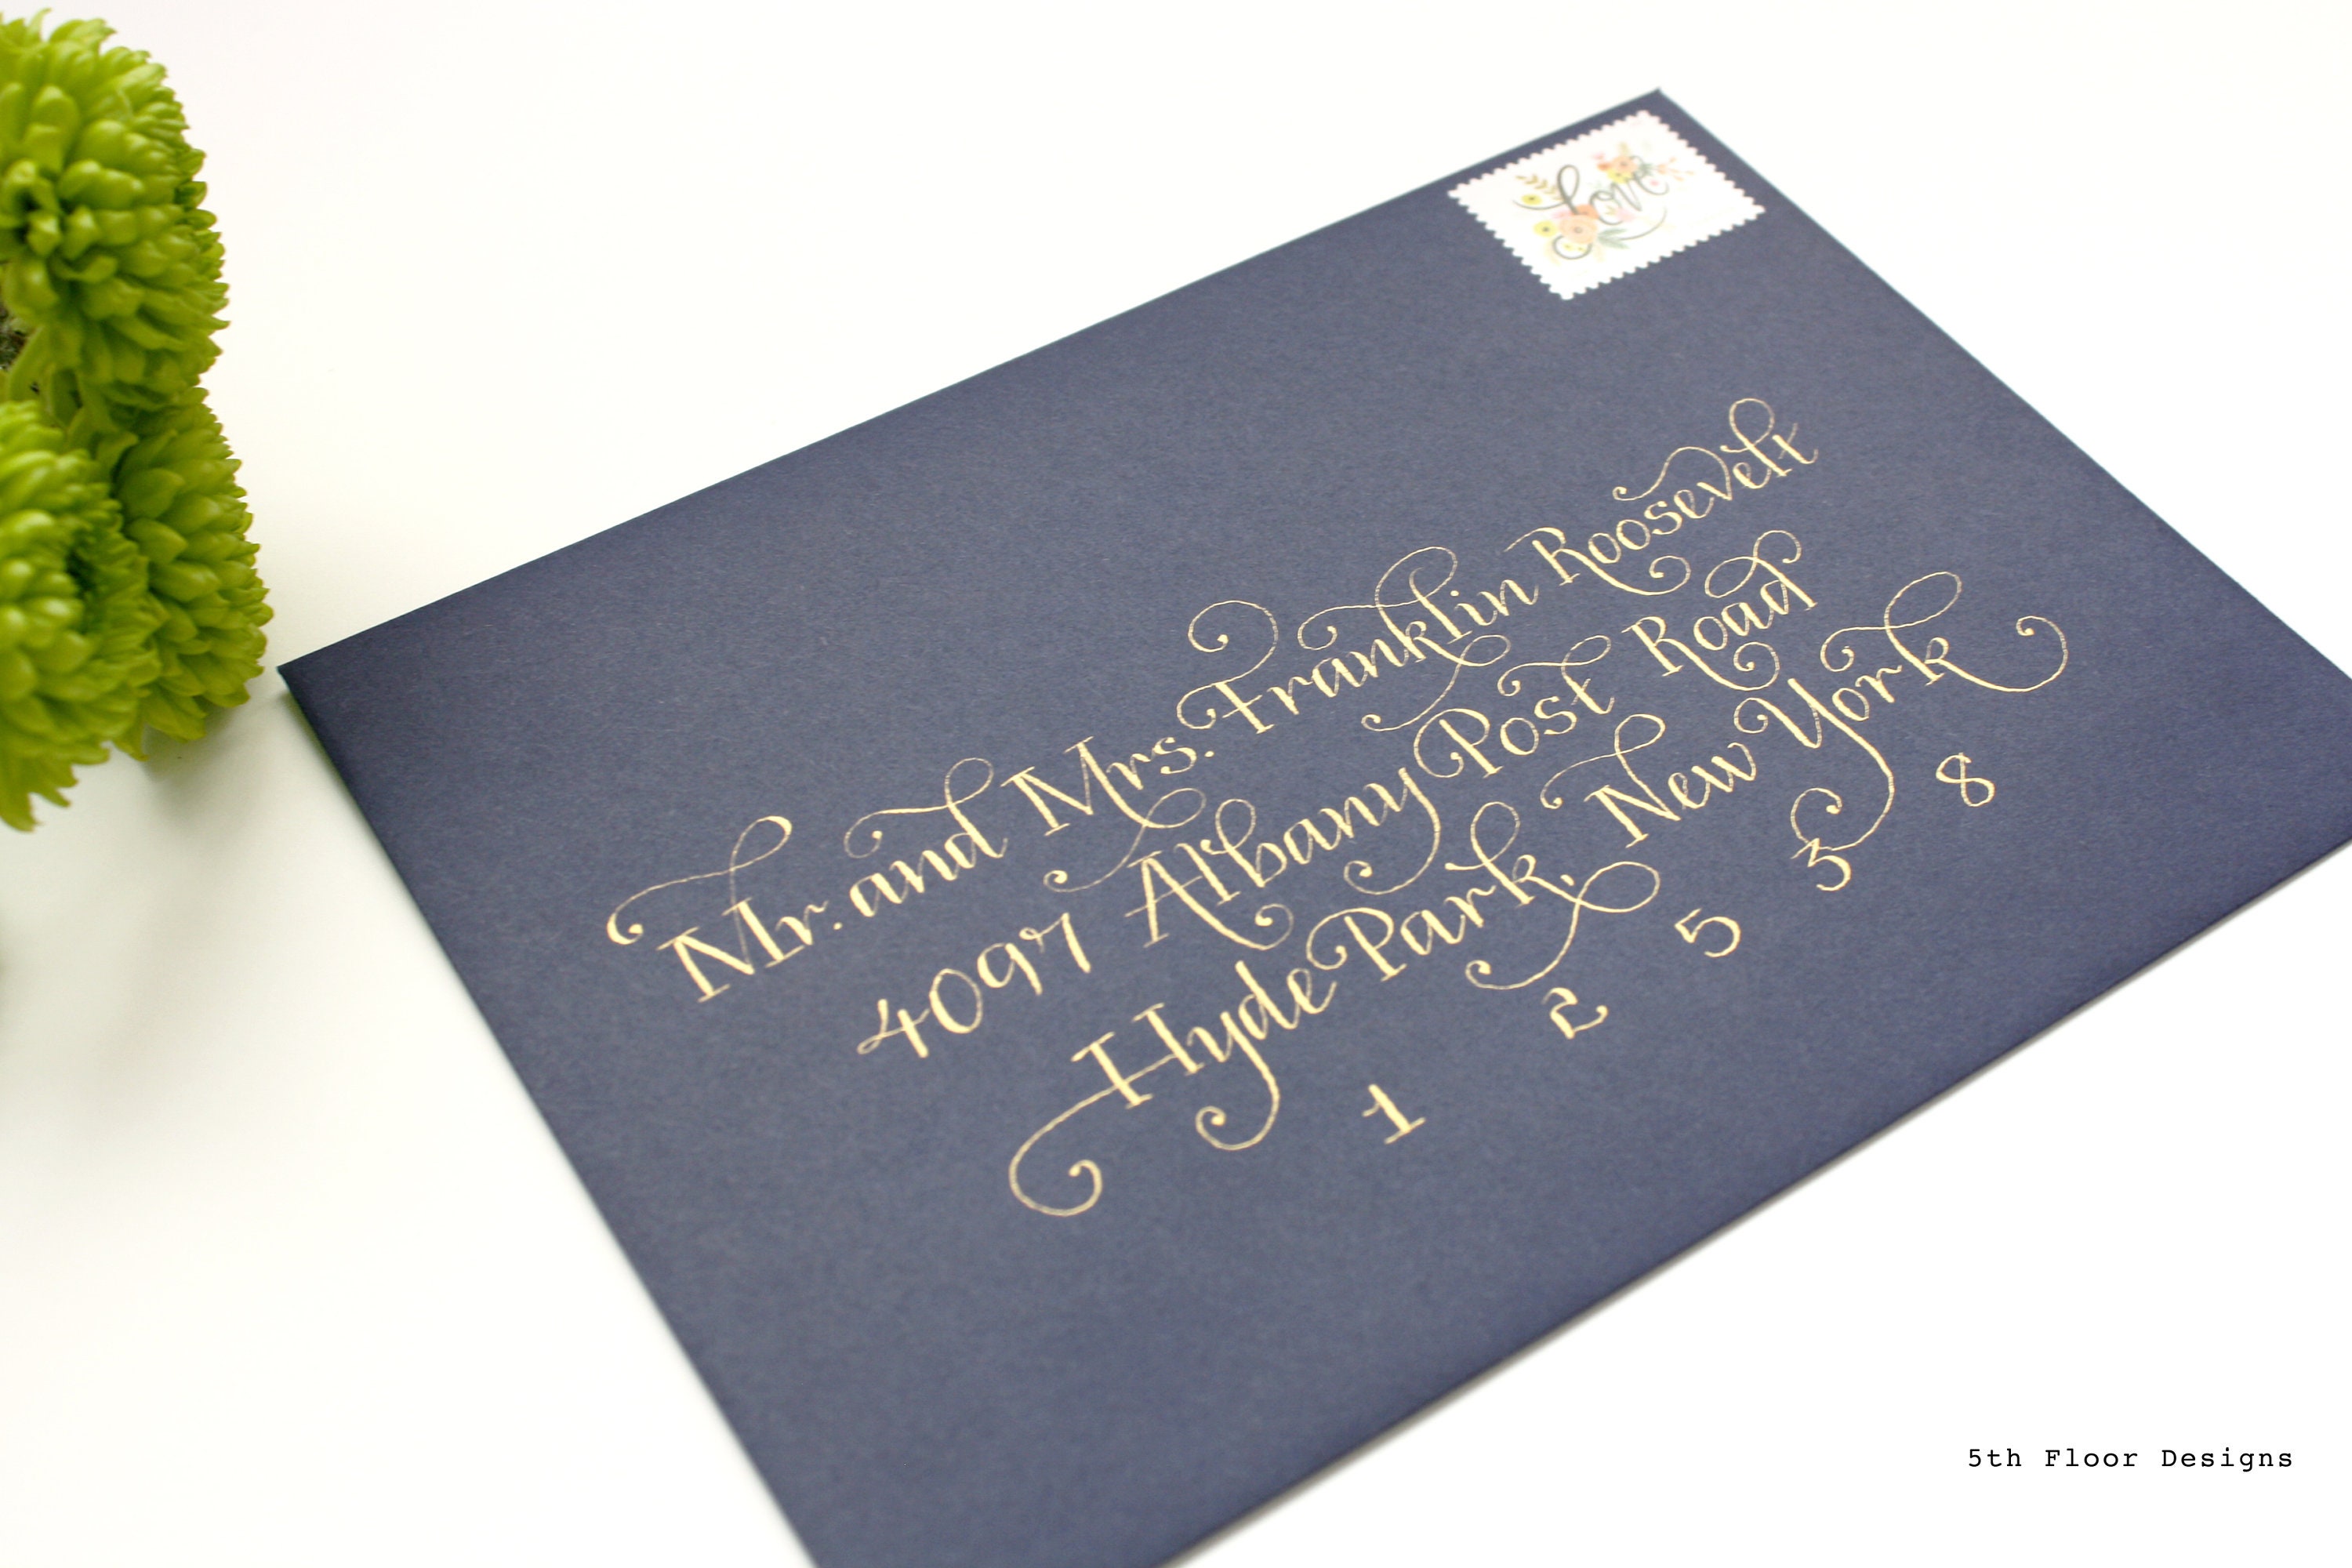 Love
Mr. and Mrs. Franklin Roosevelt
4097 Albany Post Road
Hyde Park, New York
1 2 5 3 8
5th Floor Designs